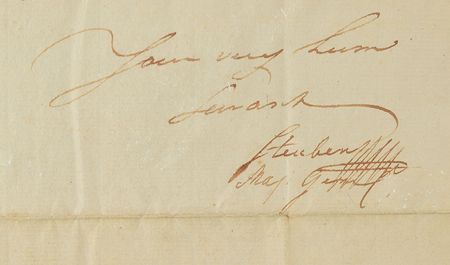 Your very hum
Servant
Steuben
Maj Genrl